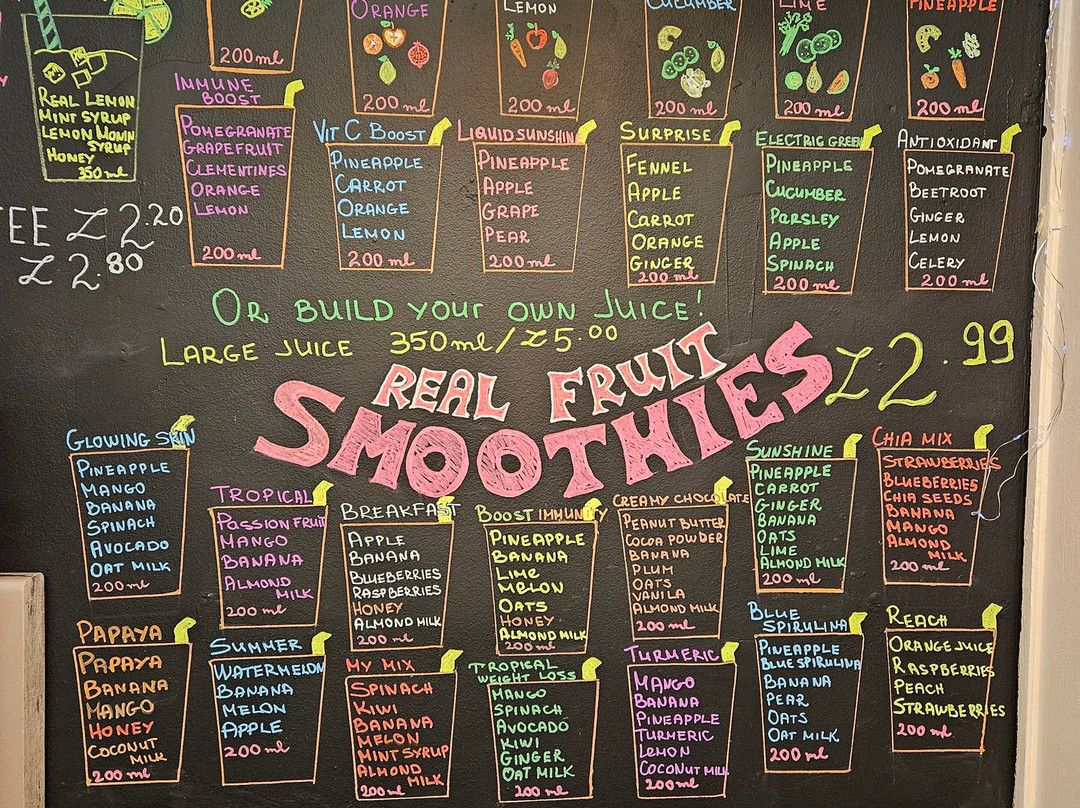 200 ml
ORANGE
200 ml
LEMON
200 ml
CUCUMBER
200 ml
LIME
200 ml
PINEAPPLE
200 ml
REAL LEMON
MINT SYRUP
LEMON MONIN
SYRUP
HONEY
350 ml
IMMUNE
BOOST
POMEGRANATE
GRAPEFRUIT
CLEMENTINES
ORANGE
LEMON
200 ml
VIT C BOOST
PINEAPPLE
CARROT
ORANGE
LEMON
200 ml
LIQUID SUNSHINE
PINEAPPLE
APPLE
GRAPE
PEAR
200 ml
SURPRISE
FENNEL
APPLE
CARROT
ORANGE
GINGER
200 ml
ELECTRIC GREEN
PINEAPPLE
CUCUMBER
PARSLEY
APPLE
SPINACH
200 ml
ANTIOXIDANT
POMEGRANATE
BEETROOT
GINGER
LEMON
CELERY
200 ml
EE £2.20
£2.80
OR BUILD YOUR OWN JUICE!
LARGE JUICE 350ml/£5.00
REAL FRUIT
SMOOTHIES £2.99
GLOWING SKIN
PINEAPPLE
MANGO
BANANA
SPINACH
AVOCADO
OAT MILK
200 ml
TROPICAL
PASSION FRUIT
MANGO
BANANA
ALMOND
MILK
200 ml
BREAKFAST
APPLE
BANANA
BLUEBERRIES
RASPBERRIES
HONEY
ALMOND MILK
200 ml
BOOST IMMUNITY
PINEAPPLE
BANANA
LIME
MELON
OATS
HONEY
ALMOND MILK
200 ml
CREAMY CHOCOLATE
PEANUT BUTTER
COCOA POWDER
BANANA
PLUM
OATS
VANILA
ALMOND MILK
200 ml
SUNSHINE
PINEAPPLE
CARROT
GINGER
BANANA
OATS
LIME
ALMOND MILK
200 ml
CHIA MIX
STRAWBERRIES
BLUEBERRIES
CHIA SEEDS
BANANA
MANGO
ALMOND
MILK
200 ml
PAPAYA
PAPAYA
BANANA
MANGO
HONEY
COCONUT
MILK
200 ml
SUMMER
WATERMELON
BANANA
MELON
APPLE
200 ml
MY MIX
SPINACH
KIWI
BANANA
MELON
MINT SYRUP
ALMOND
MILK
200 ml
TROPICAL
WEIGHT LOSS
MANGO
SPINACH
AVOCADO
KIWI
GINGER
OAT MILK
200 ml
TURMERIC
MANGO
BANANA
PINEAPPLE
TURMERIC
LEMON
COCONUT MILK
200 ml
BLUE
SPIRULINA
PINEAPPLE
BLUE SPIRULINA
BANANA
PEAR
OATS
OAT MILK
200 ml
REACH
ORANGE JUICE
RASPBERRIES
PEACH
STRAWBERRIES
200 ml